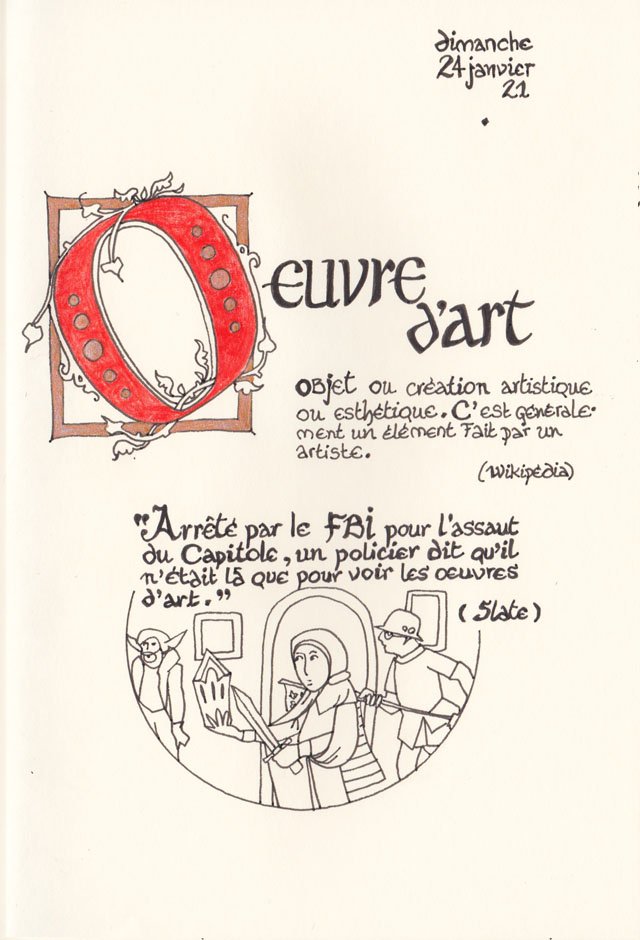 dimanche
24 janvier
21
Oeuvre
d'art
Objet ou création artistique
ou esthétique. C'est générale-
ment un élément fait par un
artiste.
(Wikipédia)
"Arrêté par le FBI pour l'assaut
du Capitole, un policier dit qu'il
n'était là que pour voir les oeuvres
d'art."
(Slate)